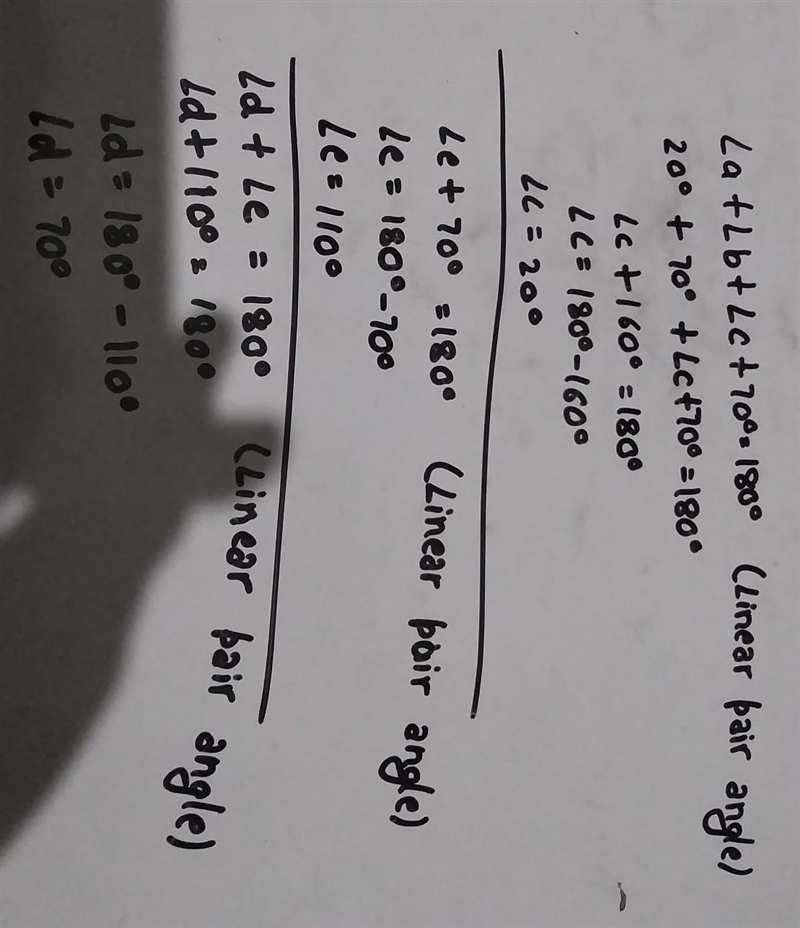 ∠a + ∠b + ∠c + 70° = 180° (Linear pair angle)
20° + 70° + ∠c + 70° = 180°
∠c + 160° = 180°
∠c = 180° - 160°
∠c = 20°
∠e + 70° = 180° (Linear pair angle)
∠e = 180° - 70°
∠e = 110°
∠d + ∠e = 180° (Linear pair angle)
∠d + 110° = 180°
∠d = 180° - 110°
∠d = 70°